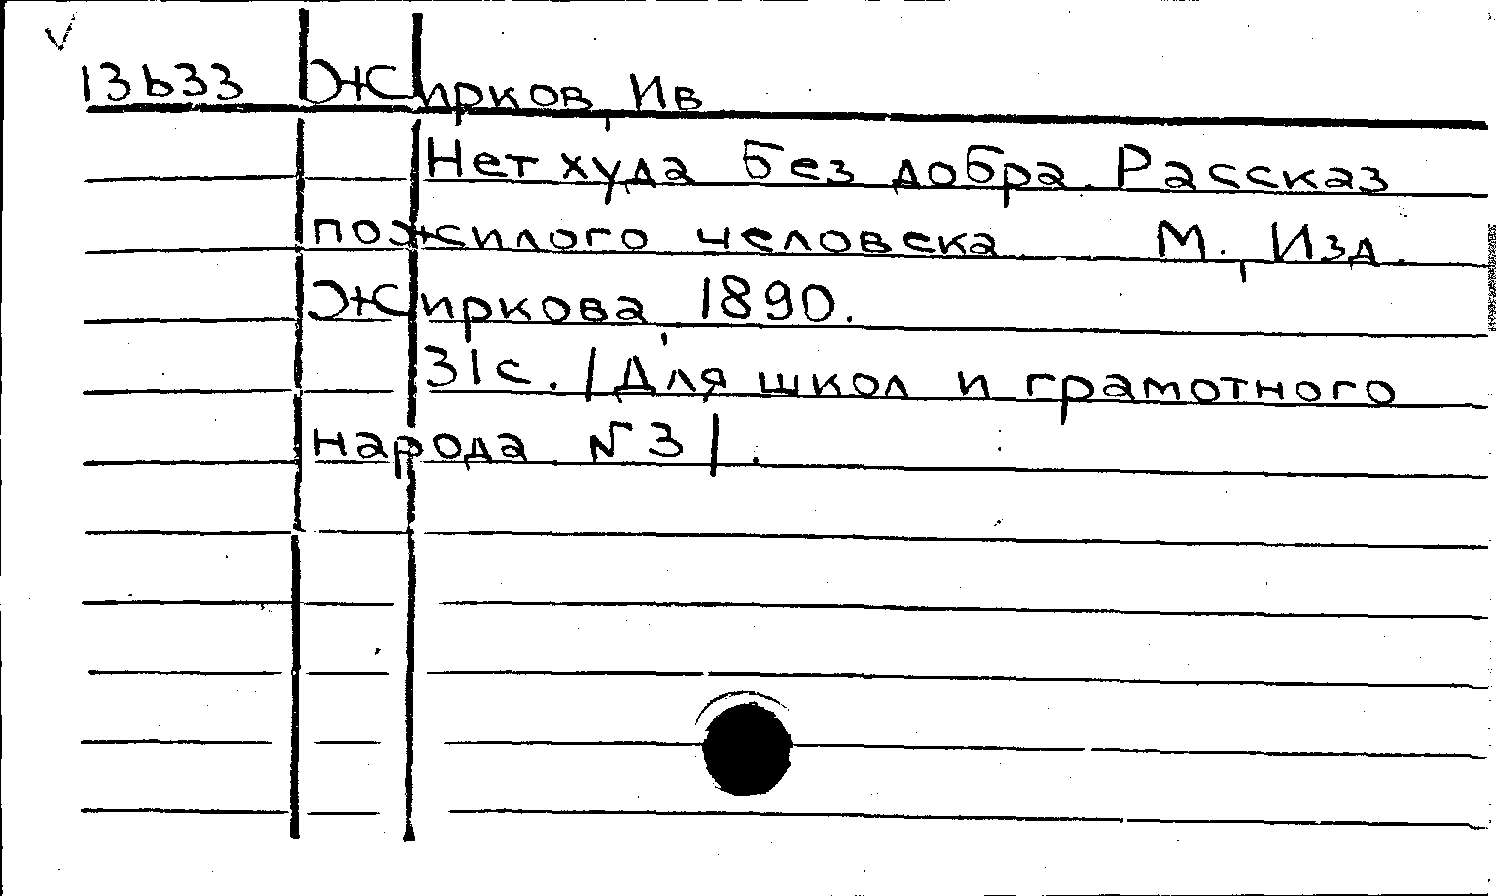 13b33 Жирков, Ив
Нет худа без добра. Рассказ
пожилого человека. М., Изд.
Жиркова, 1890.
31с. /Для школ и грамотного
народа №3/.